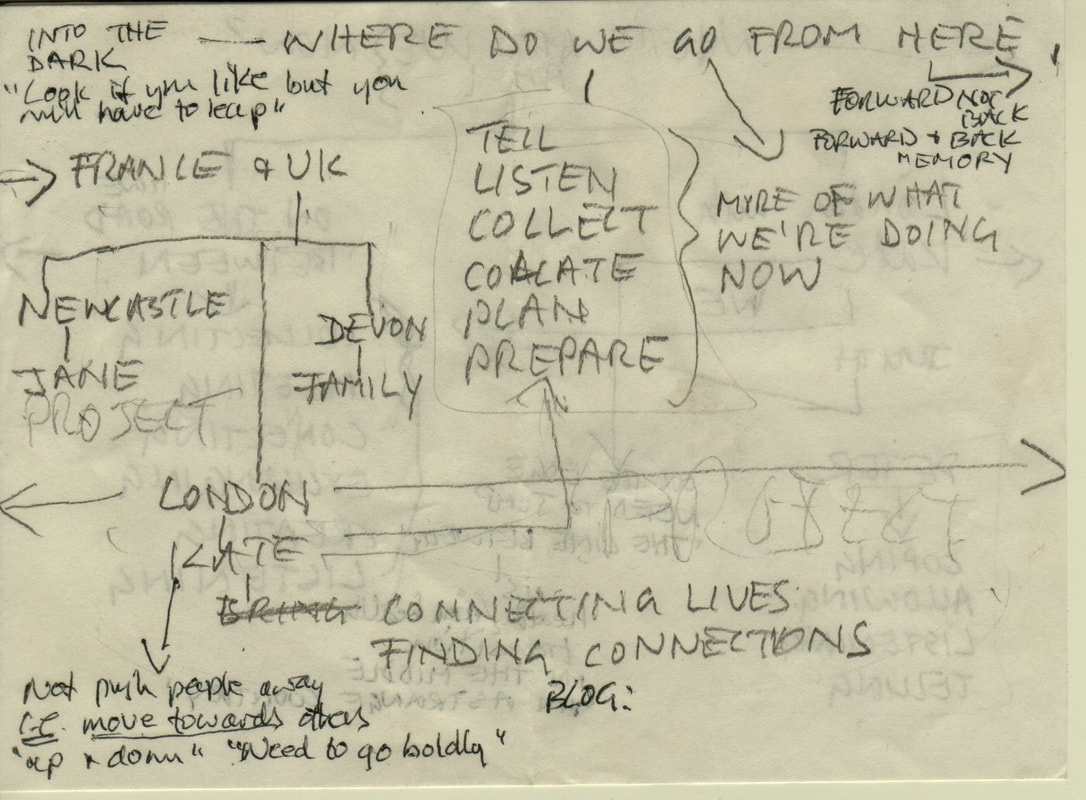 INTO THE
DARK
WHERE DO WE GO FROM HERE
"Look if you like but you
will have to leap"
FORWARD NOT
BACK
FORWARD + BACK
MEMORY
FRANCE & UK
NEWCASTLE
JANE
PROJECT
DEVON
FAMILY
TELL
LISTEN
COLLECT
COLLATE
PLAN
PREPARE
MORE OF WHAT
WE'RE DOING
NOW
LONDON
PROJECT
KATE
BRING CONNECTING LIVES
FINDING CONNECTIONS
BLOG:
Not push people away
i.e. move towards others
"up & down" "Need to go boldly"